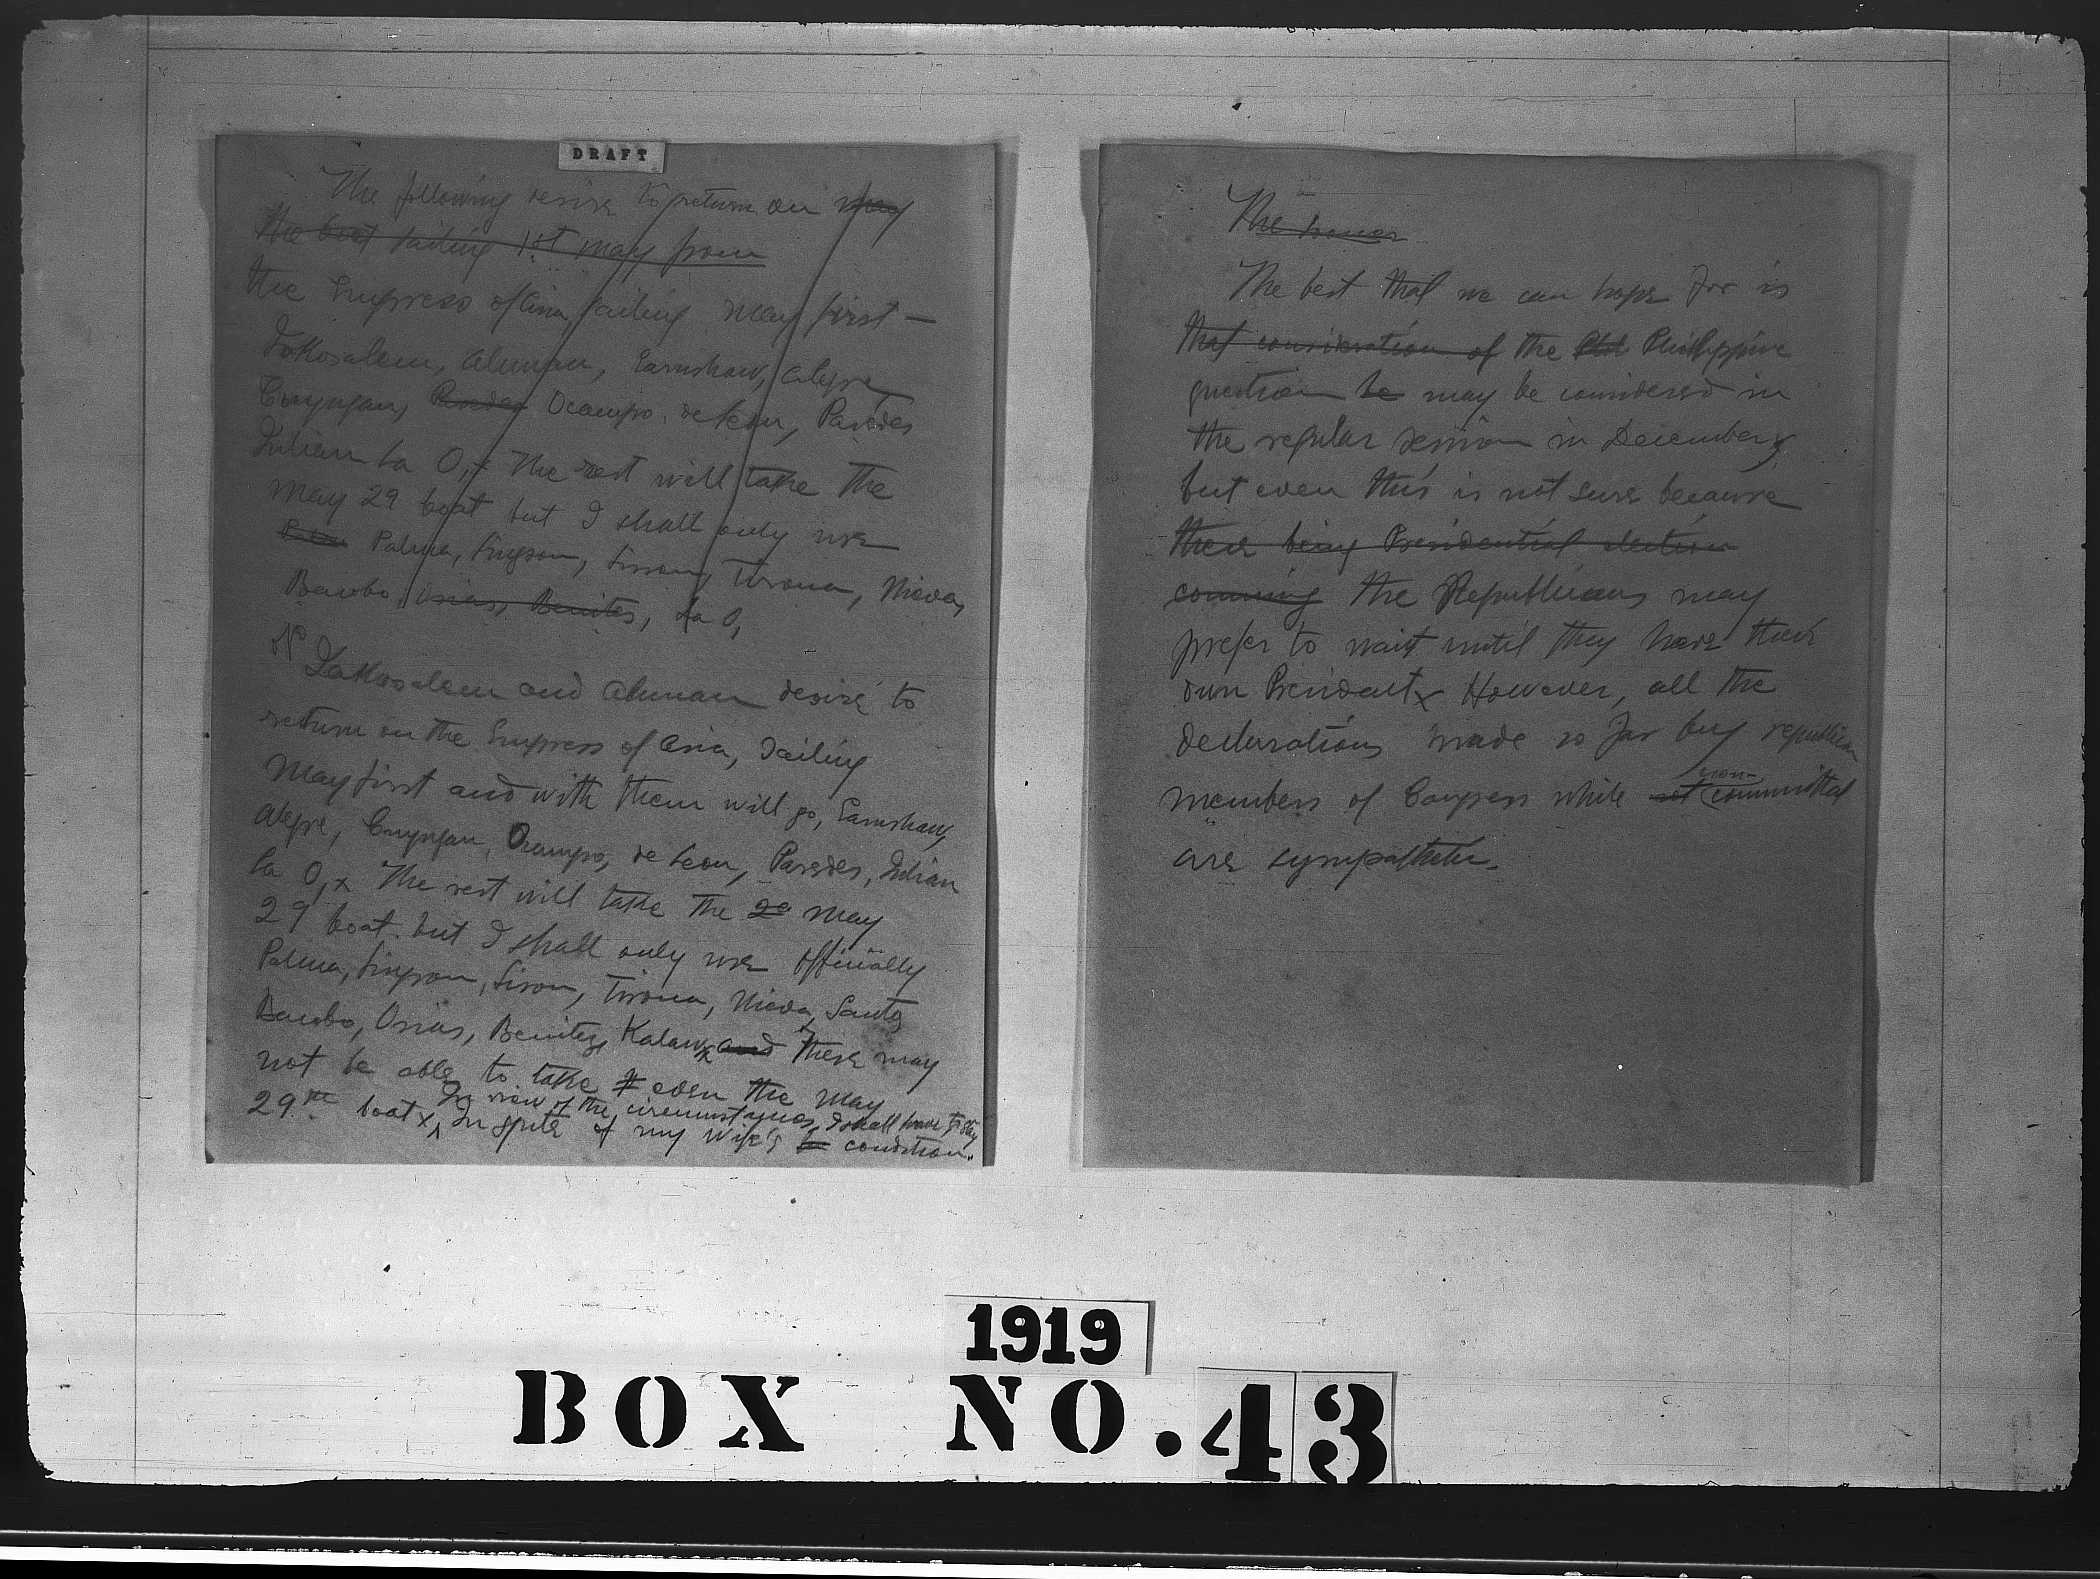 DRAFT
The following desire to return on May
the boat sailing 1st May from
the Empress of Asia sailing May first —
Jakosalem, Alunan, Earnshaw, Alegre
Cuyugan, Paredes Ocampo, de Leon, Paredes
Julian La O, x The rest will take the
May 29 boat but I shall only use
Palma Palma, Singson, Sison, Tirona, Nieva,
Barbo, Osias, Benitez, La O,
Jakosalem and Alunan desire to
return on the Empress of Asia, sailing
May first and with them will go, Earnshaw,
Alegre, Cuyugan, Ocampo, de Leon, Paredes, Julian
La O, x The rest will take the 29 May
29 boat but I shall only use officially
Palma, Singson, Sison, Tirona, Nieva, Santos
Barbo, Osias, Benitez, Kalaw x and These may
not be able to take it even the May
In view of the circumstances, I shall have to stay
29th boat x In spite of my wife's condition.
The
The best that we can hope for is
that consideration of the Phil Philippine
question be may be considered in
the regular session in December,
but even this is not sure because
there being Presidential election
coming the Republicans may
prefer to wait until they have their
own President x However, all the
declarations made so far by republican
members of Congress while not non-committal
are sympathetic.
1919
BOX NO. 43